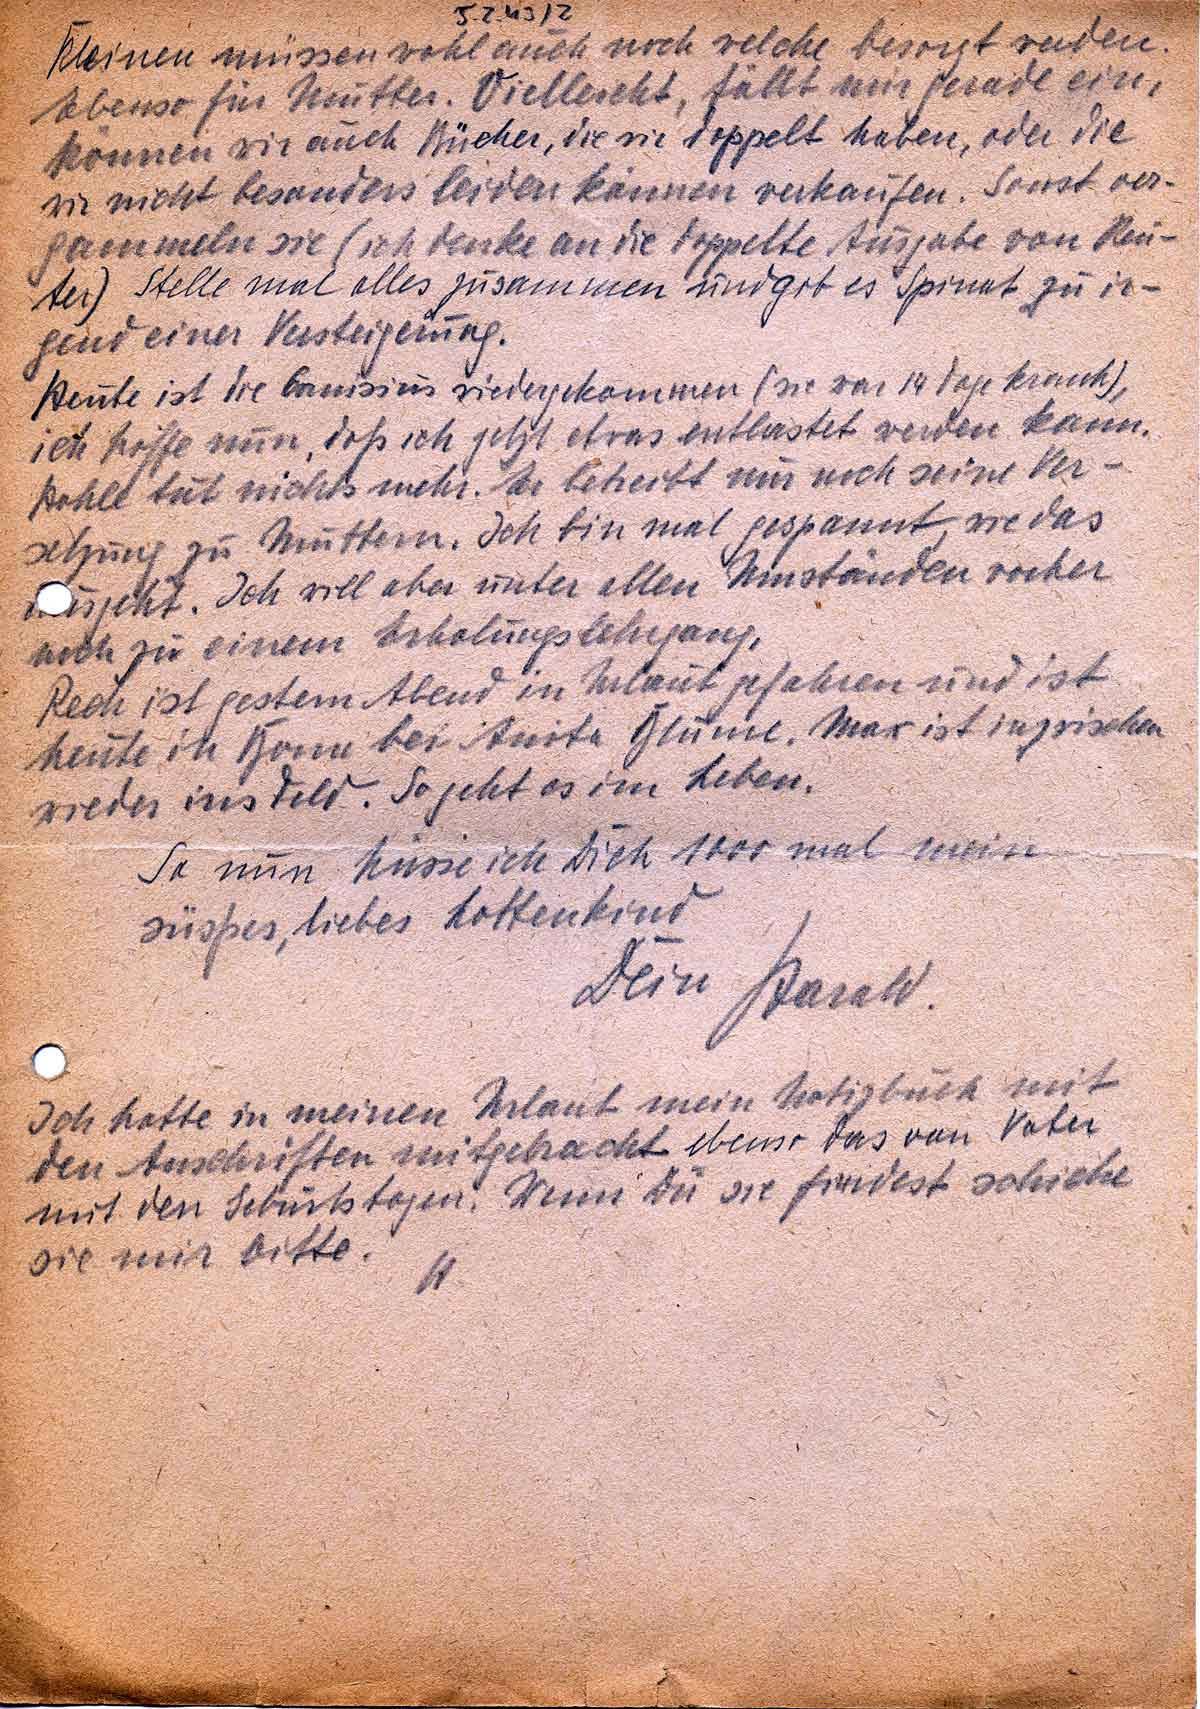 5.2.43/2
Kleinen müssen wohl auch noch welche besorgt werden.
Ebenso für Mutter. Vielleicht, fällt mir gerade ein,
können wir auch Bücher, die wir doppelt haben, oder die
wir nicht besonders leiden können verkaufen. Sonst ver-
gammeln sie (ich denke an die doppelte Ausgabe von Reu-
ter) Stelle mal alles zusammen und gib es Spinat zu ir-
gend einer Versteigerung.
Heute ist die Canisius wiedergekommen (sie war 14 Tage krank),
ich hoffe nun, daß ich jetzt etwas entlastet werden kann.
Kohle tut nichts mehr. Er betreibt nur noch seine Ver-
setzung zu Muttern. Ich bin mal gespannt, wie das
ausgeht. Ich will aber unter allen Umständen vorher
noch zu einem Erholungslehrgang.
Rech ist gestern Abend in Urlaub gefahren und ist
heute in Bonn bei Anita Blume. Max ist inzwischen
wieder ins Feld. So geht es im Leben.
So nun küsse ich Dich 1000 mal mein
süsses, liebes Lottenkind
Dein Harald.
Ich hatte in meinen Urlaub mein Notizbuch mit
den Anschriften mitgebracht ebenso das von Vater
mit den Geburtstagen. Wenn Du sie findest schicke
sie mir bitte.
H